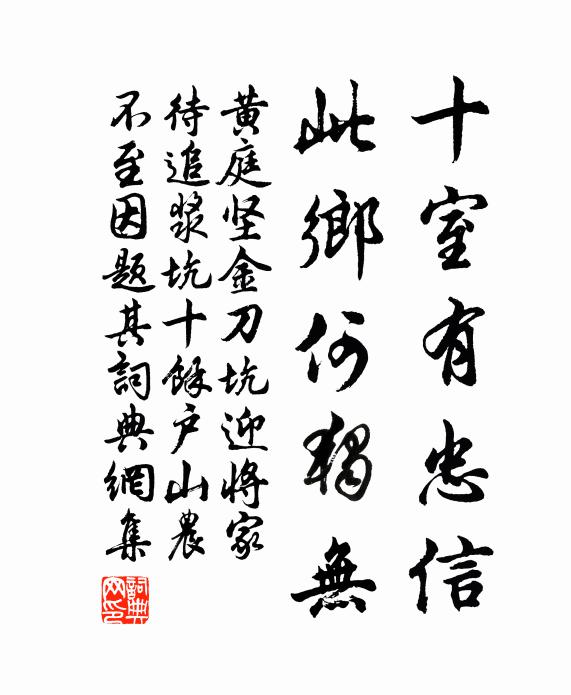 十室有忠信
此鄉何獨無
黄庭坚金刀坑迎將家
待追漿坑十餘户山農
不至因题其詞典網集
詞典网印